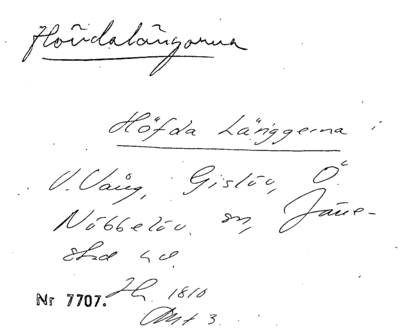 Hövdalängorna
Höfda Länggerna i
V. Vång, Gislöv, Ö
Nöbbelöv sn, Järre-
stad hd.
Nr 7707. Hn. 1810
Akt 3.